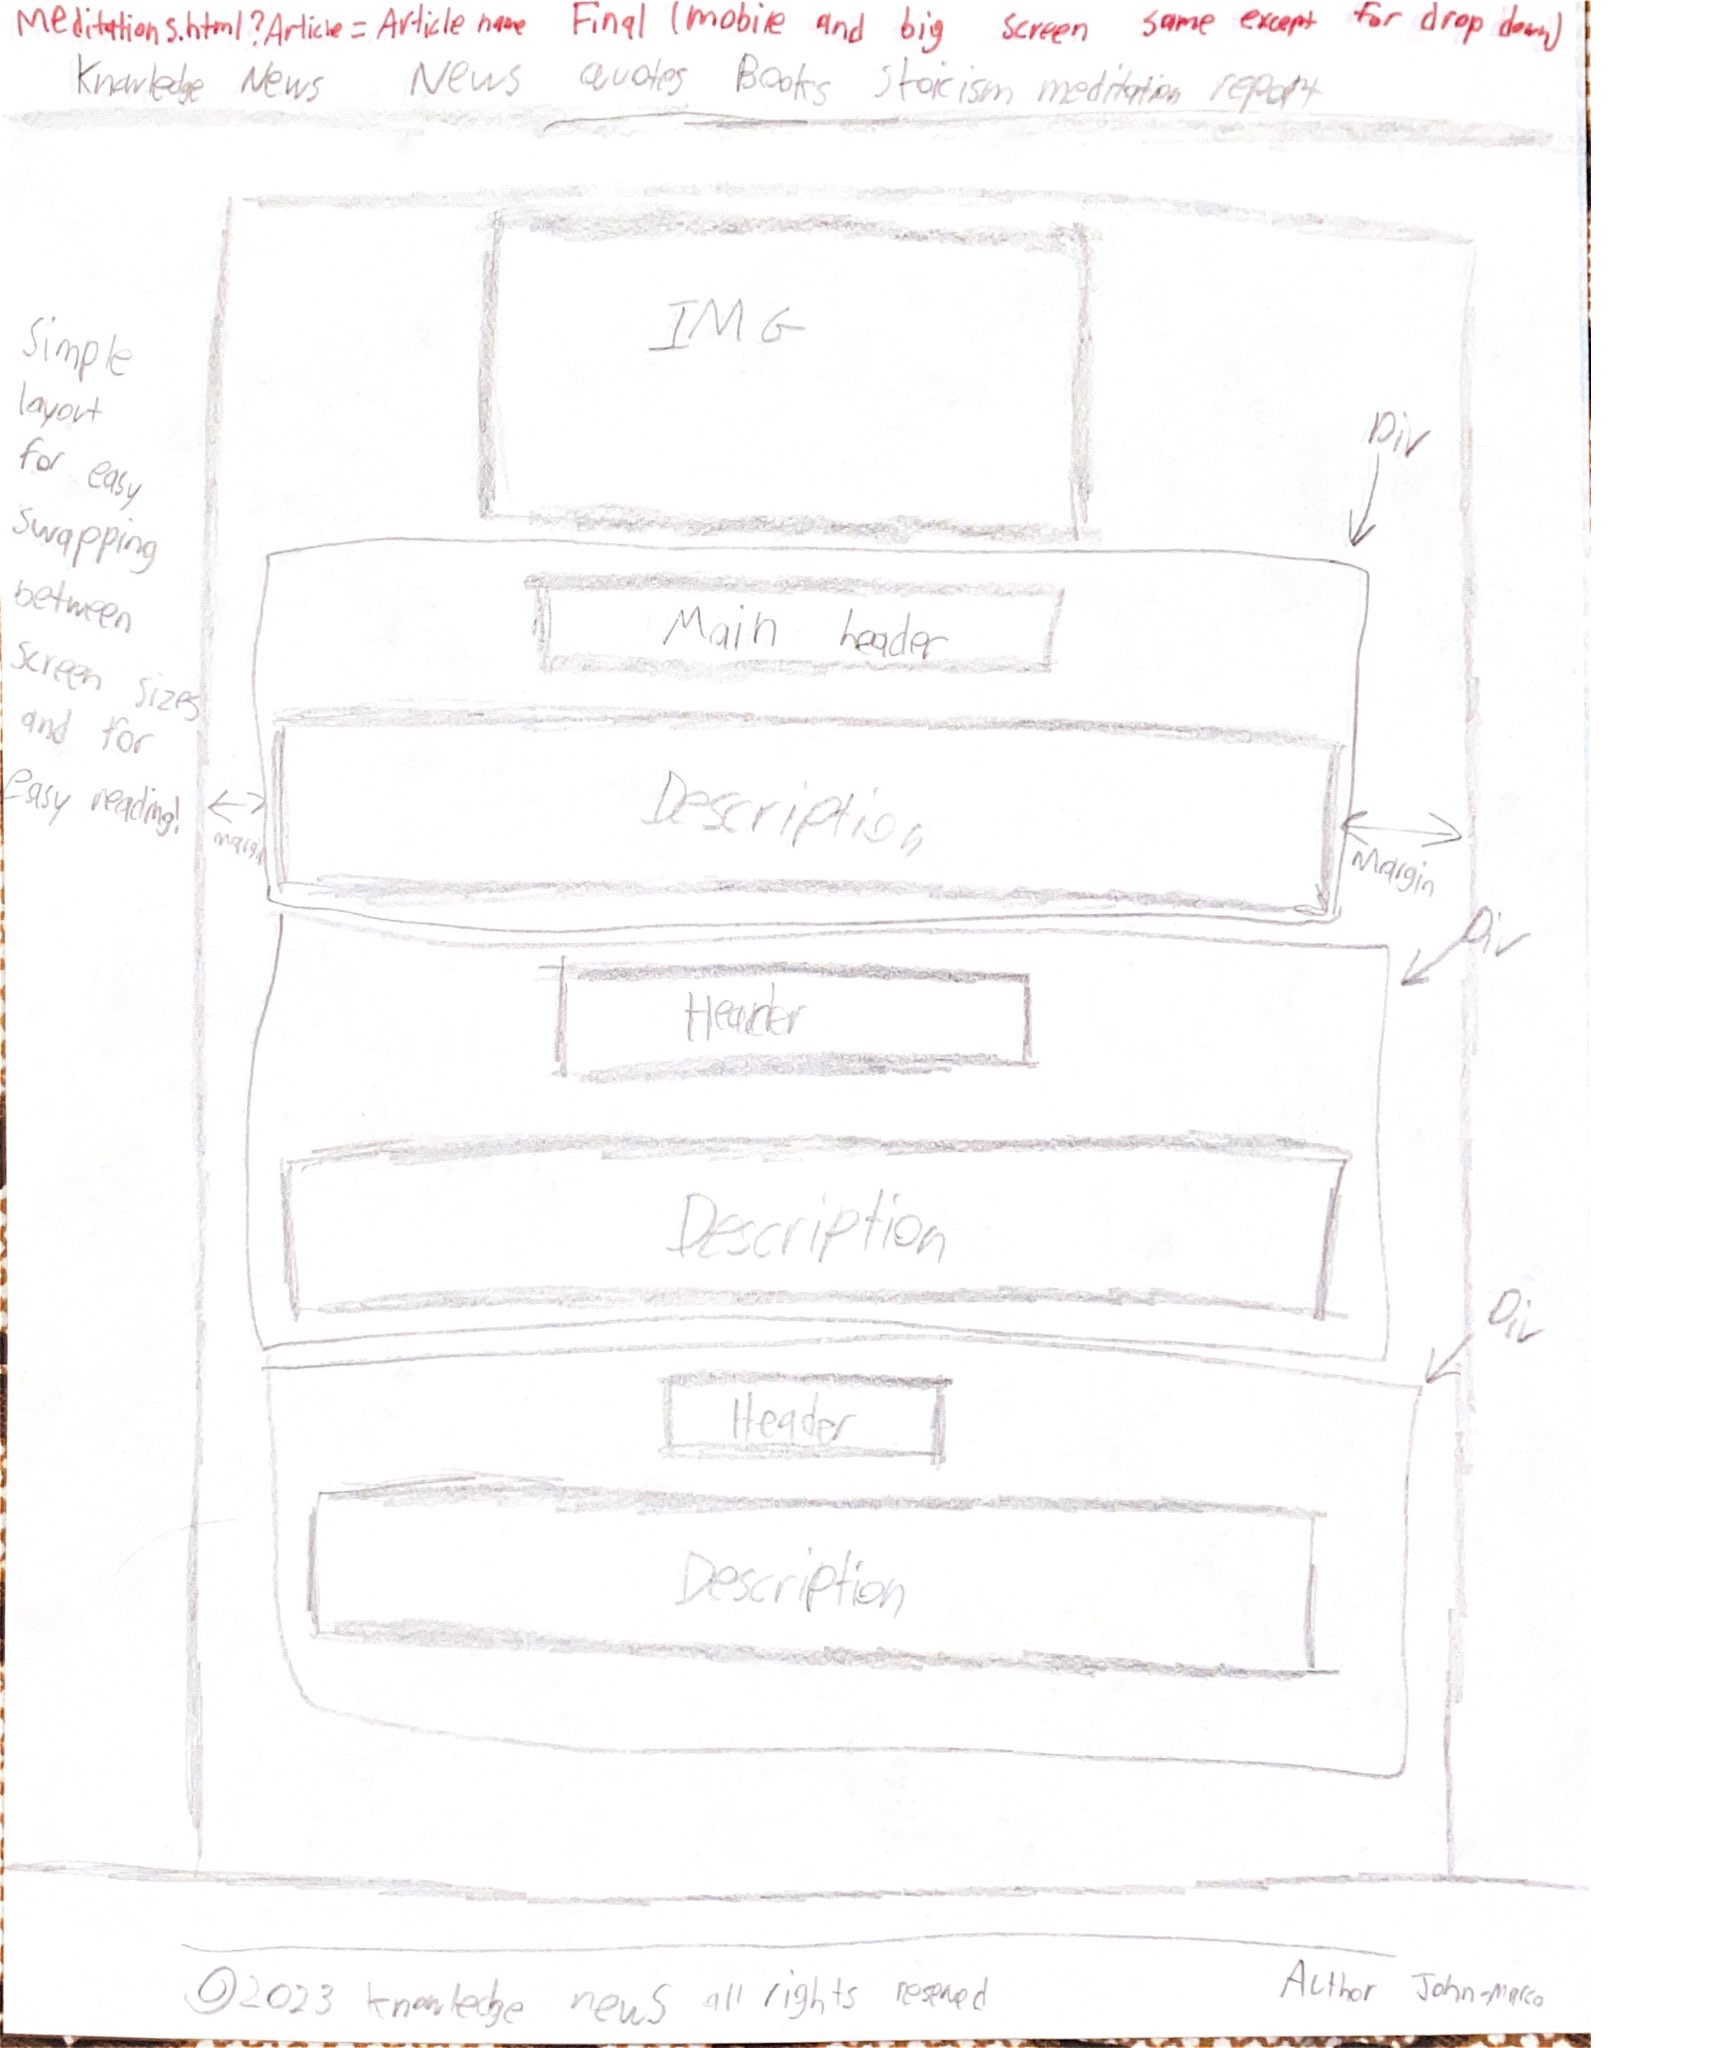 Meditations.html?Article = Article name Final (mobile and big screen same except for drop down)
Knowledge News News quotes Books stoicism meditation report
IMG
Simple
layout
for easy
swapping
between
screen sizes
and for
Easy reading!
Div
Main header
Description
margin
Margin
Div
Header
Description
Div
Header
Description
©2023 knowledge news all rights reserved Author John-Marco